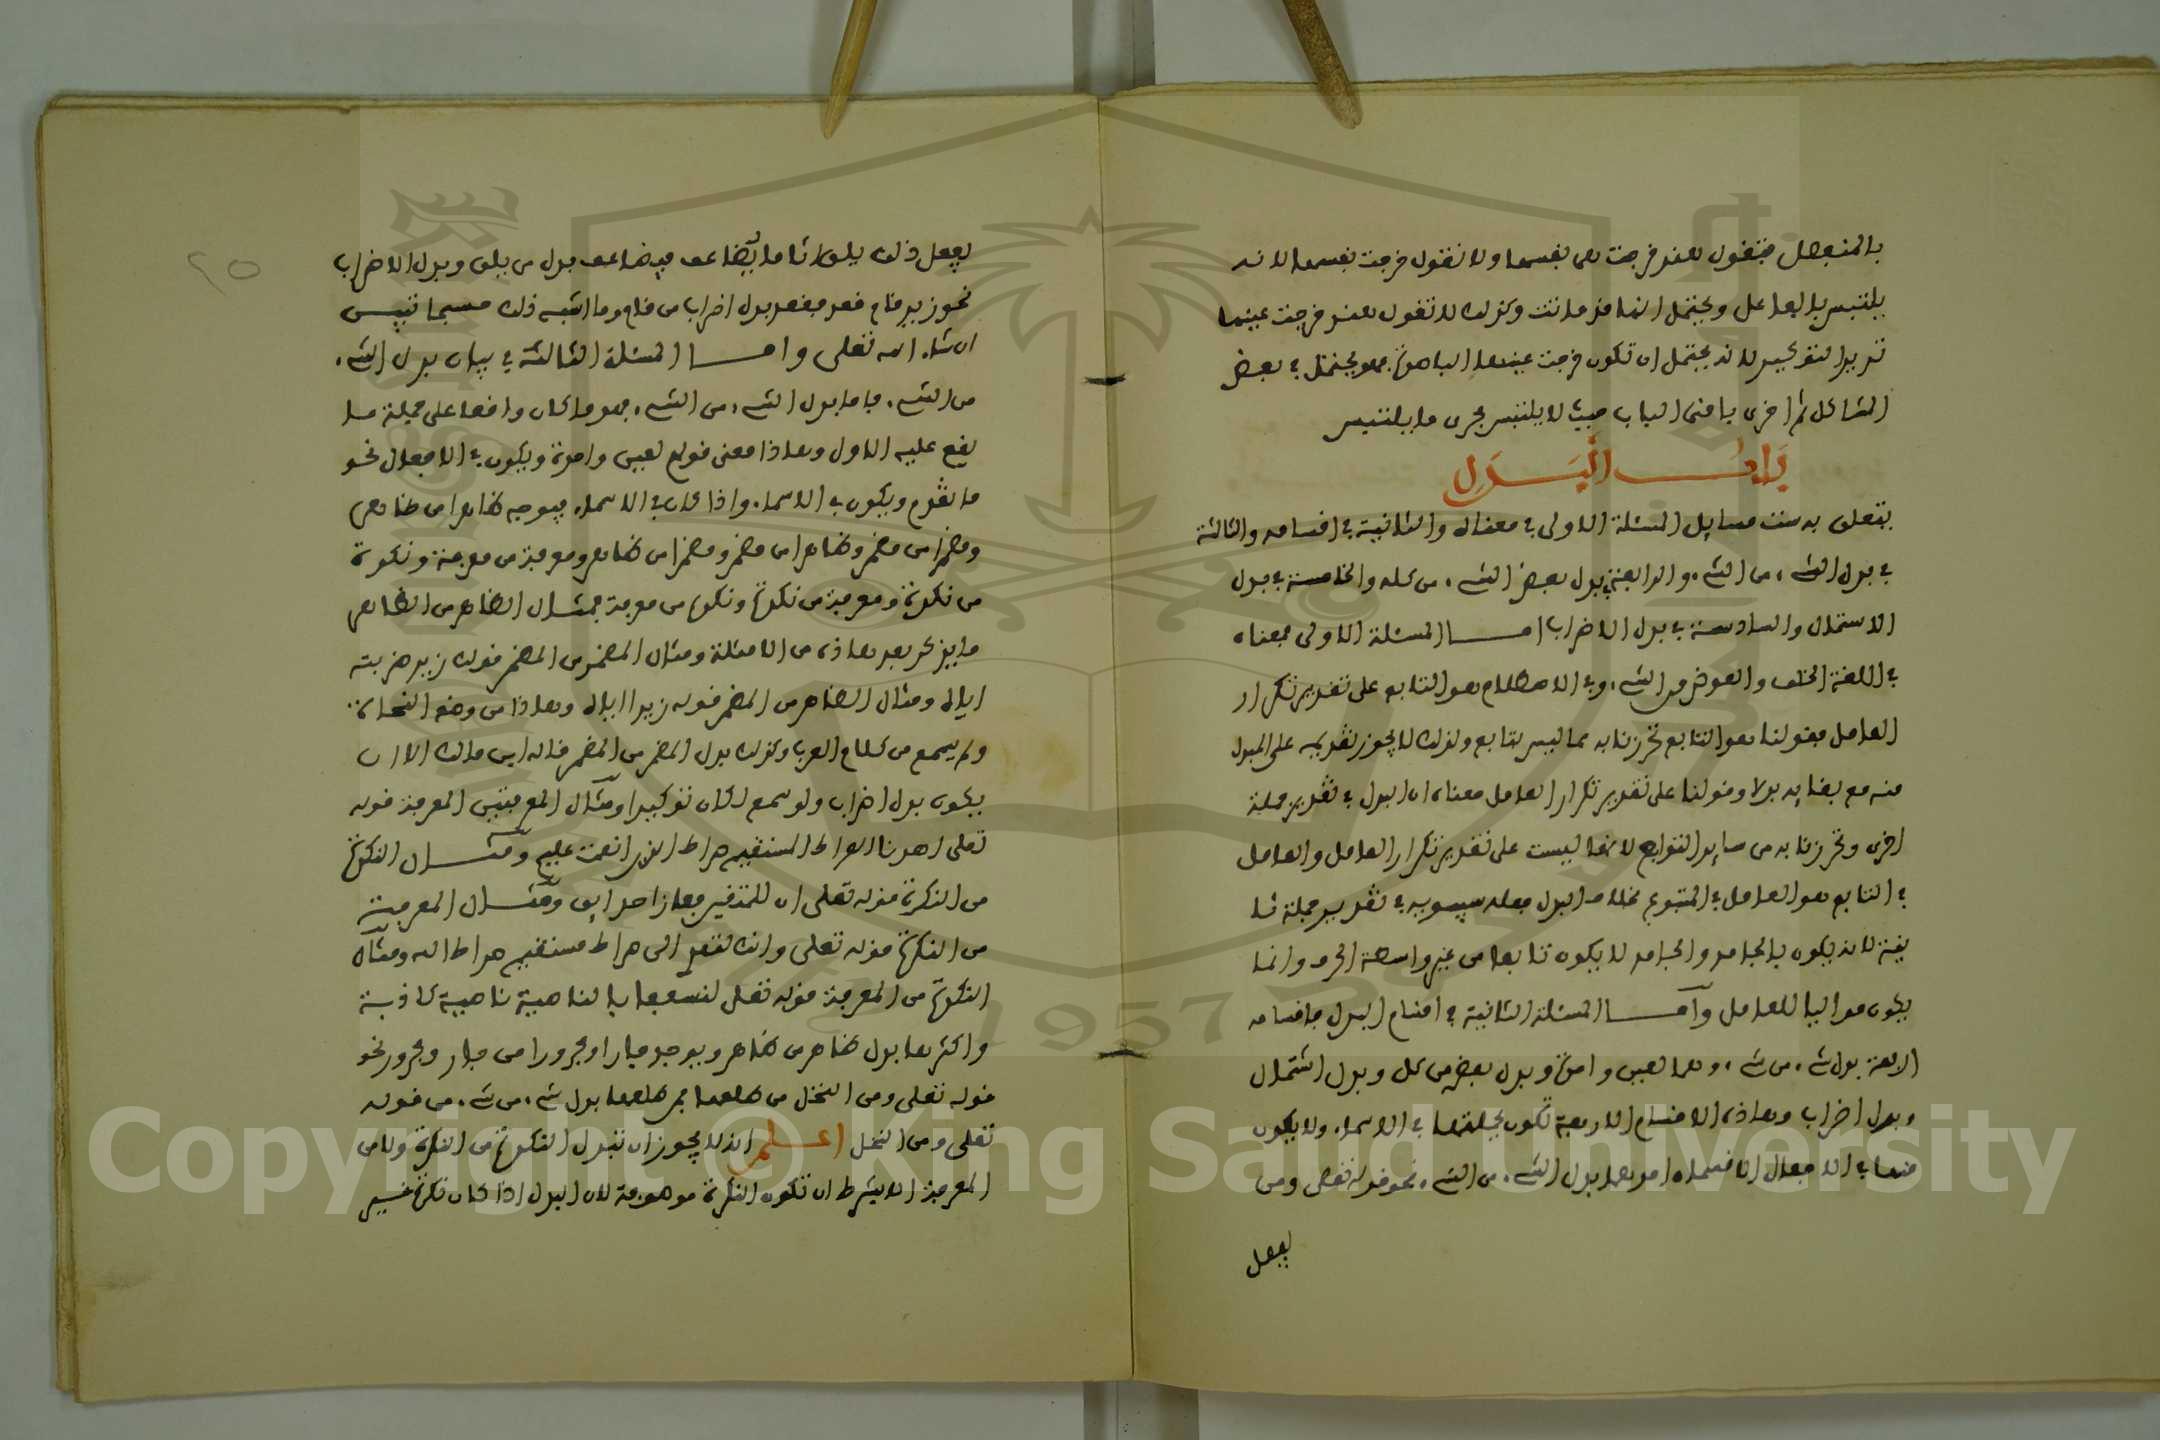 بالمنفصل فتقول هند خرجت هي نفسها ولا تقول خرجت نفسها لانه
يلتبس بالفاعل ويحتمل انها قد ماتت وكذلك لا تقول هند خرجت عينها
تريد التوكيد لانه يحتمل ان تكون خرجت عينها الباصرة فهو يحتمل في بعض
المسائل ثم اجرى باقي الباب حيث لا يلتبس مجرى ما يلتبس
باب البدل
يتعلق به ست مسايل المسئلة الاولى في معناه والثانية في اقسامه والثالثة
في بدل الشيء من الشيء والرابعة في بدل بعض الشيء من كله والخامسة في بدل
الاشتمال والسادسة في بدل الاضراب امـا المسئلة الاولى فمعناه
في اللغة الخلف والعوض من الشيء وفي الاصطلاح هو التابع على تقدير تكرار
العامل فقولنا هو التابع تحرزنا به مما ليس بتابع ولذلك لا يجوز تقديمه على المبدل
منه مع بقايه بدلا وقولنا على تقدير تكرار العامل معناه ان البدل في تقدير جملة
اخرى وتحرزنا به من ساير التوابع لانها ليست على تقدير تكرار العامل والعامل
في التابع هو العامل في المتبوع بخلاف البدل جعله سيبويه في تقدير جملة ثا
نية لانه يكون بالجامد والجامد لا يكون تابعا من غير واسطة الحرف وانما
يكون مواليا للعامل وامـا المسئلة الثانية في اقسام البدل فاقسامه
اربعة بدل شيء من شيء وهما لعين واحدة وبدل بعض من كل وبدل اشتمال
وبدل اضراب وهذه الاقسام الاربعة تكون بجملتها في الاسماء ولا يكون
منها في الافعال الا قسمان احدهما بدل الشيء من الشيء نحو قوله تعلى ومن
يفعل
يفعل ذلك يلق اثاما يضاعف فيضاعف بدل من يلق وبدل الاضراب
نحو زيد قام قعد فقعد بدل اضراب من قام وما اشبه ذلك حسبما تبين
ان شاء الله تعلى وامـا المسئلة الثالثة في بيان بدل الشيء
من الشيء فاما بدل الشيء من الشيء فهو ما كان واقعا على جملة ما
يقع عليه الاول وهاذا معنى قولهم لعين واحدة ويكون في الافعال نحو
ما تقدم ويكون في الاسماء واذا كان في الاسماء فيوجد ظاهرا من ظاهر
ومضمرا من مضمر وظاهرا من مضمر ومضمرا من ظاهر ومعرفة من معرفة ونكرة
من نكرة ومعرفة من نكرة ونكرة من معرفة فمثال الظاهر من الظاهر
ما يذكر بعد هاذه من الامثلة ومثال المضمر من المضمر قولك زيد ضربته
اياه ومثال الظاهر من المضمر قوله زيدا اياه وهاذا من وضع النحاة
ولم يسمع من كلام العرب وكذلك بدل المضمر من المضمر قاله ابن مالك الا ان
يكون بدل اضراب ولو سمع لكان توكيدا ومثال المعرفتين المعرفة قوله
تعلى اهدنا الصراط المستقيم صراط الذين انعمت عليهم ومثـال النكرة
من النكرة قوله تعلى ان للمتقين مفازا حدايق ومثـال المعرفة
من النكرة قوله تعلى وانك لتهدي الى صراط مستقيم صراط الله ومثال
النكرة من المعرفة قوله تعلى لنسفعا بالناصية ناصية كاذبة
واكثرها بدل ظاهر من ظاهر ويوجد جارا ومجرورا من جار ومجرور نحو
قوله تعلى ومن النخل من طلعها فمن طلعها بدل شيء من شيء من قوله
تعلى ومن النخل اعلم انه لا يجوز ان تبدل النكرة من النكرة ولا من
المعرفة الا بشرط ان تكون النكرة موصوفة لان البدل اذا كان نكرة غير
٢٥
Copyright © King Saud University
1957